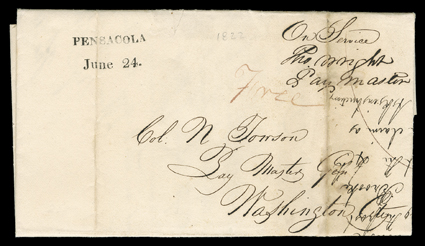 PENSACOLA
June 24.
1822
On Service
Tho. Wright
Pay Master
Free
Col. N Towson
Pay Master Gen
Washington
claim of